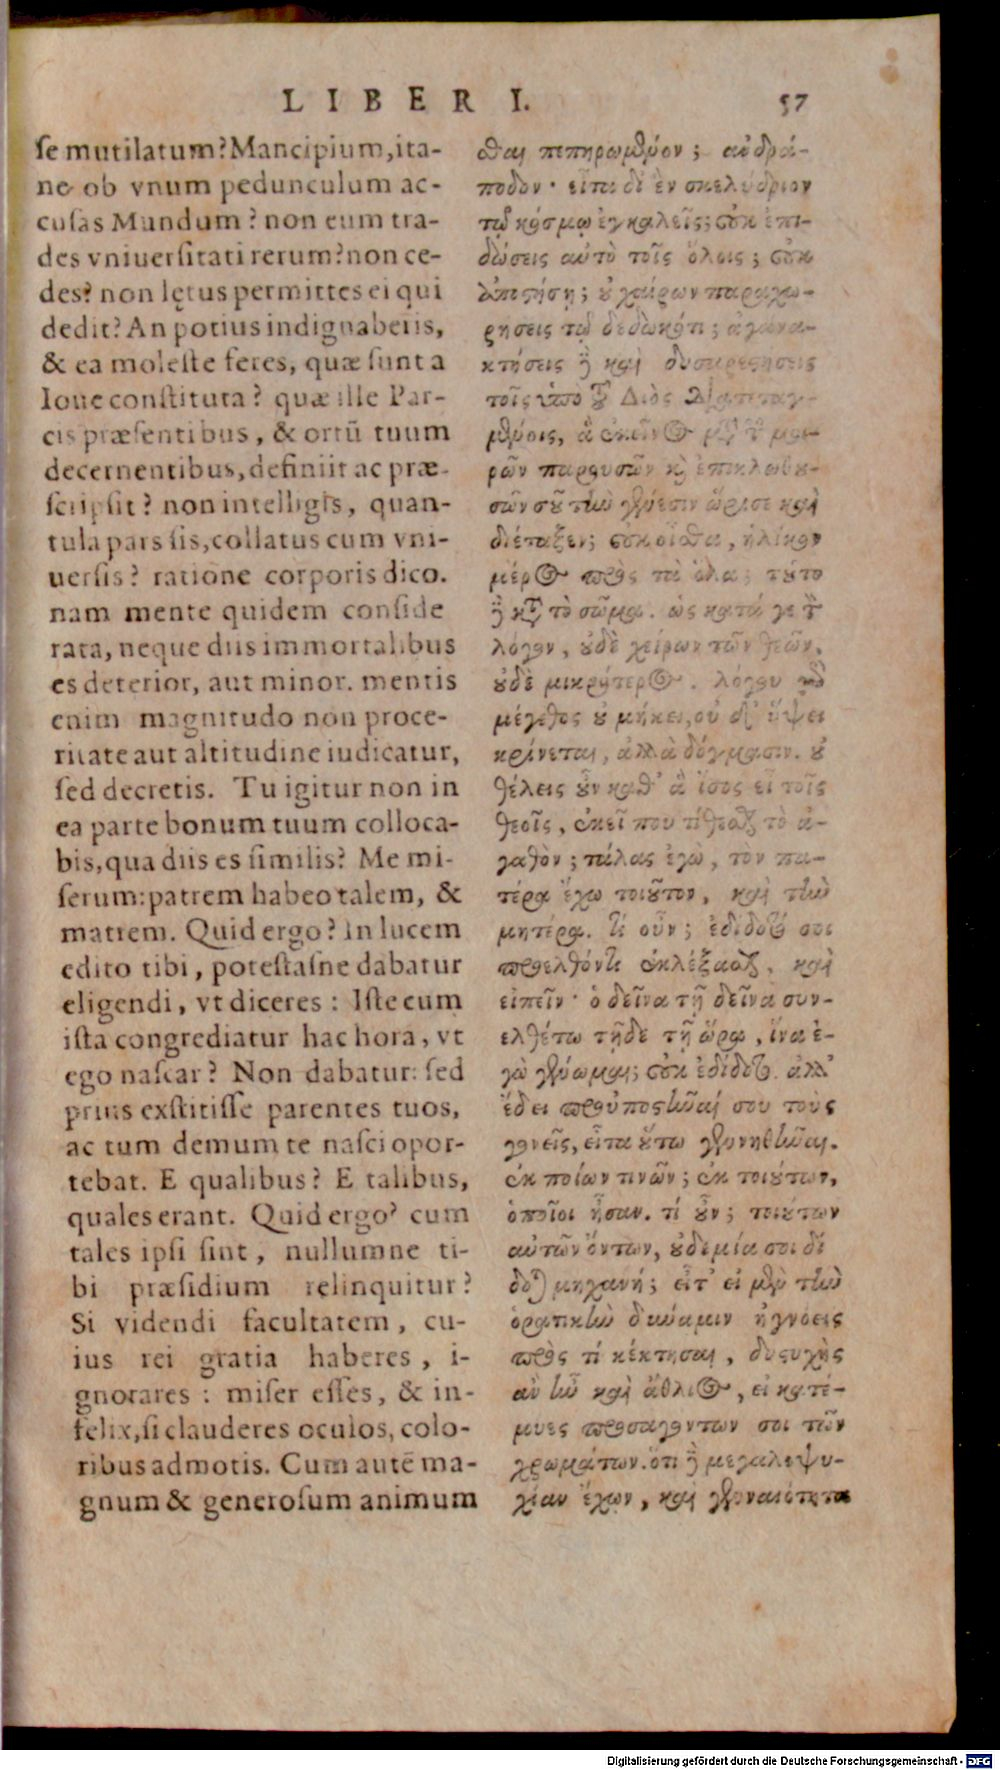 LIBER I. 57
se mutilatum? Mancipium, ita-
ne ob vnum pedunculum ac-
cusas Mundum? non eum tra-
des vniuersitati rerum? non ce-
des? non lętus permittes ei qui
dedit? An potius indignaberis,
& ea moleste feres, quæ sunt a
Ioue constituta? quæ ille Par-
cis præsentibus, & ortū tuum
decernentibus, definiit ac præ-
scripsit? non intelligis, quan-
tula pars sis, collatus cum vni-
uersis? ratione corporis dico.
nam mente quidem conside
rata, neque diis immortalibus
es deterior, aut minor. mentis
enim magnitudo non proce-
ritate aut altitudine iudicatur,
sed decretis. Tu igitur non in
ea parte bonum tuum colloca-
bis, qua diis es similis? Me mi-
serum: patrem habeo talem, &
matrem. Quid ergo? In lucem
edito tibi, potestasne dabatur
eligendi, vt diceres: Iste cum
ista congrediatur hac hora, vt
ego nascar? Non dabatur: sed
prius exstitisse parentes tuos,
ac tum demum te nasci opor-
tebat. E qualibus? E talibus,
quales erant. Quid ergo? cum
tales ipsi sint, nullumne ti-
bi præsidium relinquitur?
Si videndi facultatem, cu-
ius rei gratia haberes, i-
gnorares: miser esses, & in-
felix, si clauderes oculos, colo-
ribus admotis. Cum autē ma-
gnum & generosum animum
σθαι πεπηρωμένον; ἀνδρά-
ποδον· εἶτα δι' ἓν σκελύδριον
τῷ κόσμῳ ἐγκαλεῖς; οὐκ ἐπι-
δώσεις αὐτὸ τοῖς ὅλοις; οὐκ
ἀποστήσῃ; οὐ χαίρων παραχω-
ρήσεις τῷ δεδωκότι; ἀγανα-
κτήσεις ἢ καὶ δυσαρεστήσεις
τοῖς ὑπὸ τοῦ Διὸς διατεταγ-
μένοις, ἃ ἐκεῖνος μετὰ τῶν μοι-
ρῶν παρουσῶν καὶ ἐπικλωθου-
σῶν σοῦ τὴν γένεσιν ὥρισε καὶ
διέταξεν; οὐκ οἶσθα, ἡλίκον
μέρος πρὸς τὰ ὅλα; τοῦτο
ἢ κατὰ τὸ σῶμα. ὡς κατά γε τὸν
λόγον, οὐδὲ χείρων τῶν θεῶν,
οὐδὲ μικρότερος. λόγου γὰρ
μέγεθος οὐ μήκει, οὐδ' ὕψει
κρίνεται, ἀλλὰ δόγμασιν. οὐ
θέλεις οὖν καθ' ἃ ἴσος εἶ τοῖς
θεοῖς, ἐκεῖ που τίθεσθαι τὸ ἀ-
γαθόν; τάλας ἐγὼ, τὸν πα-
τέρα ἔχω τοιοῦτον, καὶ τὴν
μητέρα. τί οὖν; ἐδίδοτό σοι
προελθόντι ἐκλέξασθαι, καὶ
εἰπεῖν· ὁ δεῖνα τῇ δεῖνα συν-
ελθέτω τῇδε τῇ ὥρᾳ, ἵνα ἐ-
γὼ γένωμαι; οὐκ ἐδίδοτο. ἀλλ'
ἔδει προϋποστῆναί σου τοὺς
γονεῖς, εἶτα οὕτω γεννηθῆναι.
ἐκ ποίων τινῶν; ἐκ τοιούτων,
ὁποῖοι ἦσαν. τί οὖν; τοιούτων
αὐτῶν ὄντων, οὐδεμία σοι δί
δοται μηχανή; εἶτ' εἰ μὲν τὴν
ὁρατικὴν δύναμιν ἠγνόεις
πρὸς τί κέκτησαι, δυστυχὴς
ἂν ἦν καὶ ἄθλιος, εἰ κατέ-
μυες προσαγόντων σοι τῶν
χρωμάτων. ὅτι ἢ μεγαλοψυ-
χίαν ἔχων, καὶ γενναιότητα
Digitalisierung gefördert durch die Deutsche Forschungsgemeinschaft - DFG